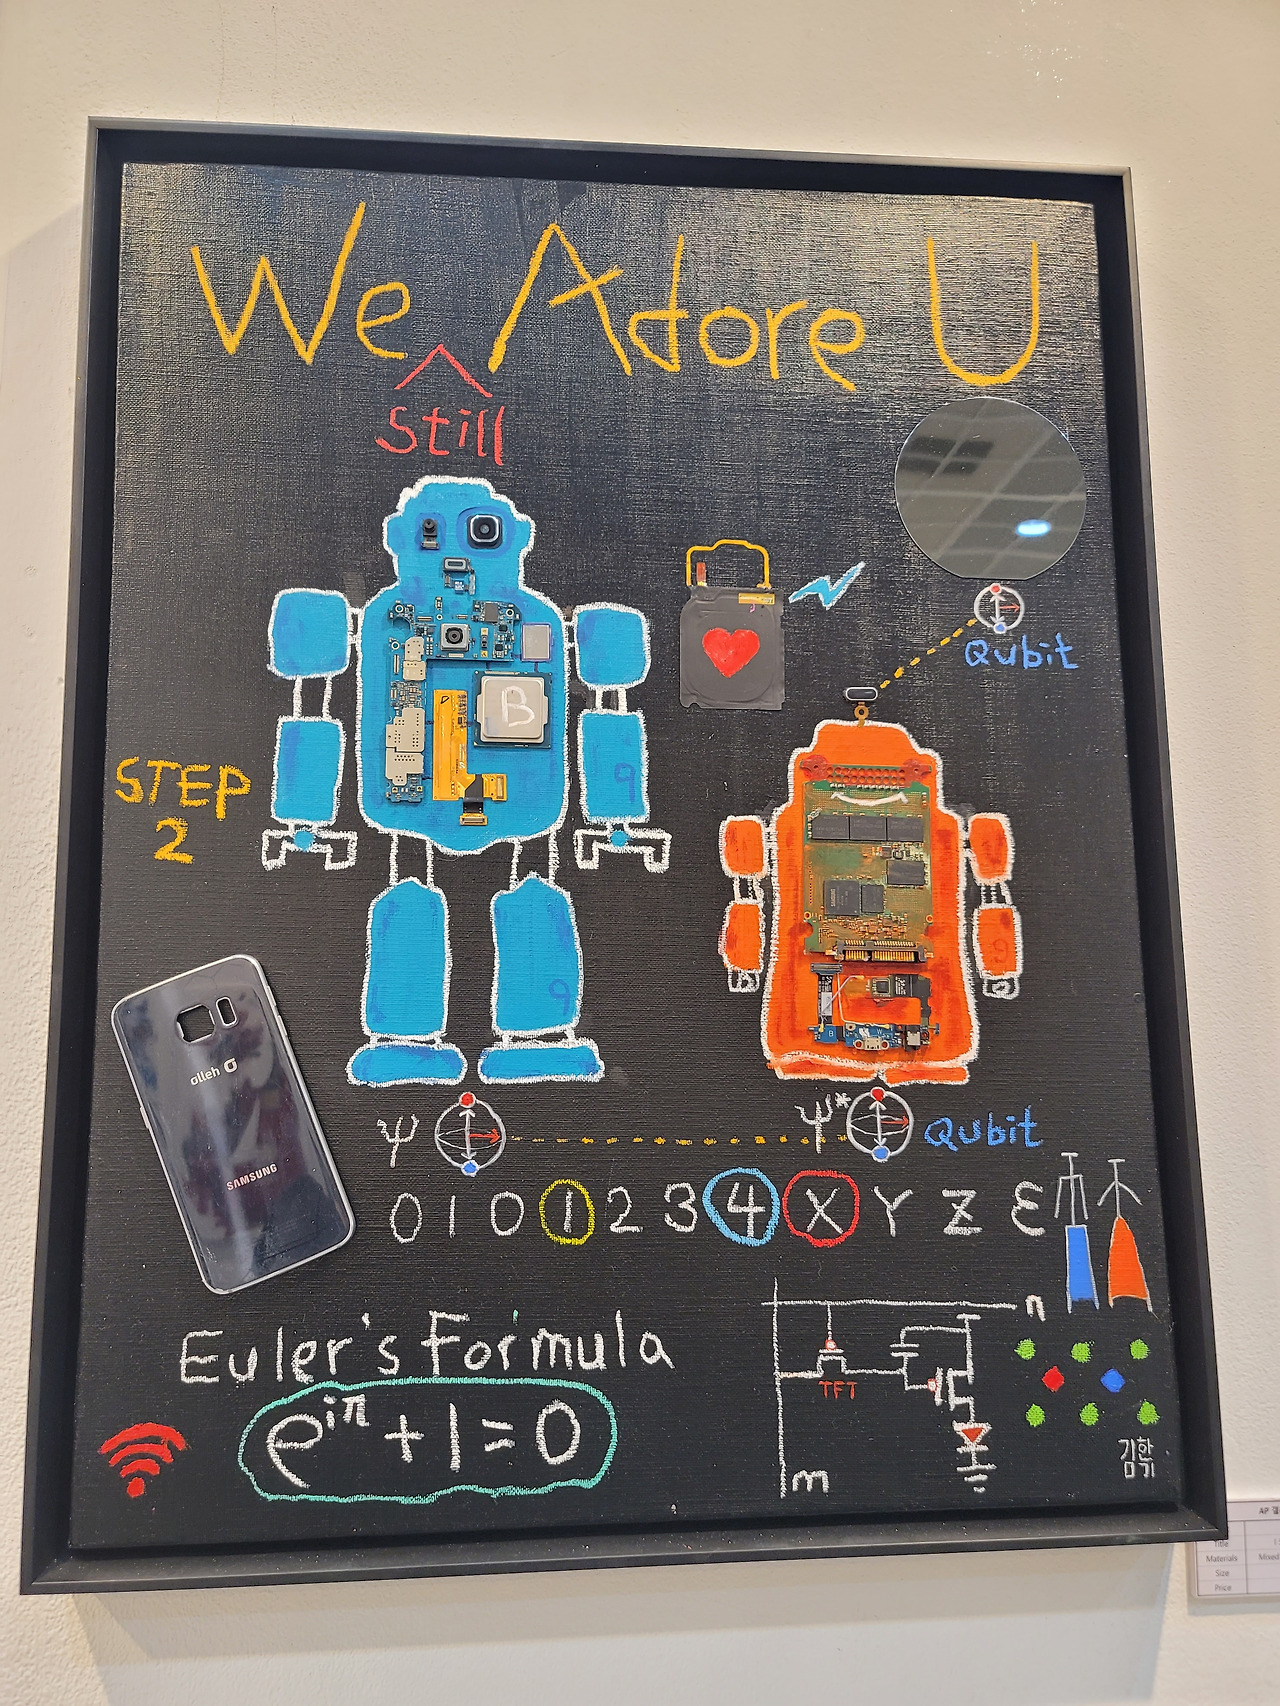 We Adore U
Still
Qubit
B
9
STEP
2
9
9
olleh
SAMSUNG
ψ
ψ*
Qubit
0 1 0 1 2 3 4 X Y Z ε
n
Euler's Formula
TFT
e^{iπ}+1=0
m
김환기
AP
Title
Materials
Mixed
Size
Price